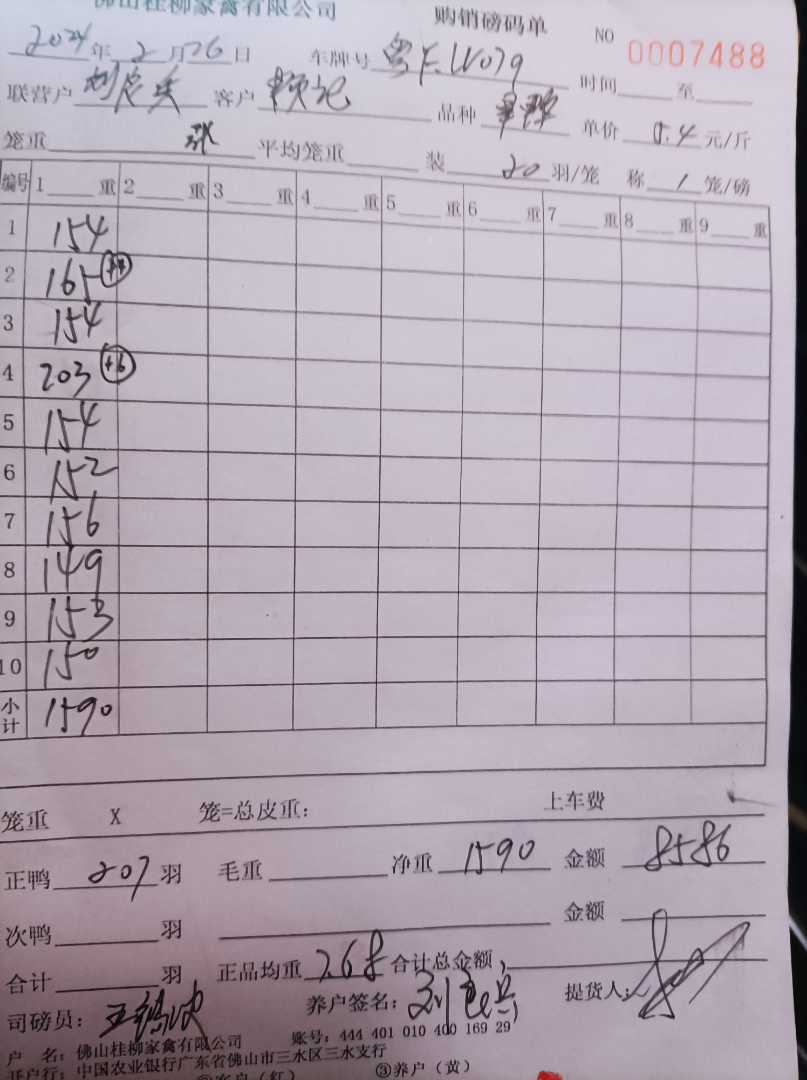 佛山桂柳家禽有限公司 购销磅码单 NO 0007488
2024年2月26日 车牌号
时间 至
联营户 客户 顾记 品种 单价 5.4 元/斤
笼重 平均笼重 装 20 羽/笼 称 1 笼/磅
编号 1 重 2 重 3 重 4 重 5 重 6 重 7 重 8 重 9 重
1 154
2 165
3 154
4 203 +6
5 154
6 152
7 156
8 149
9 153
10 150
小计 1590
笼重 X 笼=总皮重: 上车费
正鸭 207 羽 毛重 净重 1590 金额 8586
次鸭 羽 金额
合计 羽 正品均重 7.68 合计总金额
司磅员: 养户签名: 提货人:
户 名: 佛山桂柳家禽有限公司 账号: 444 401 010 400 169 29
开户行: 中国农业银行广东省佛山市三水区三水支行
②客户(红) ③养户(黄)